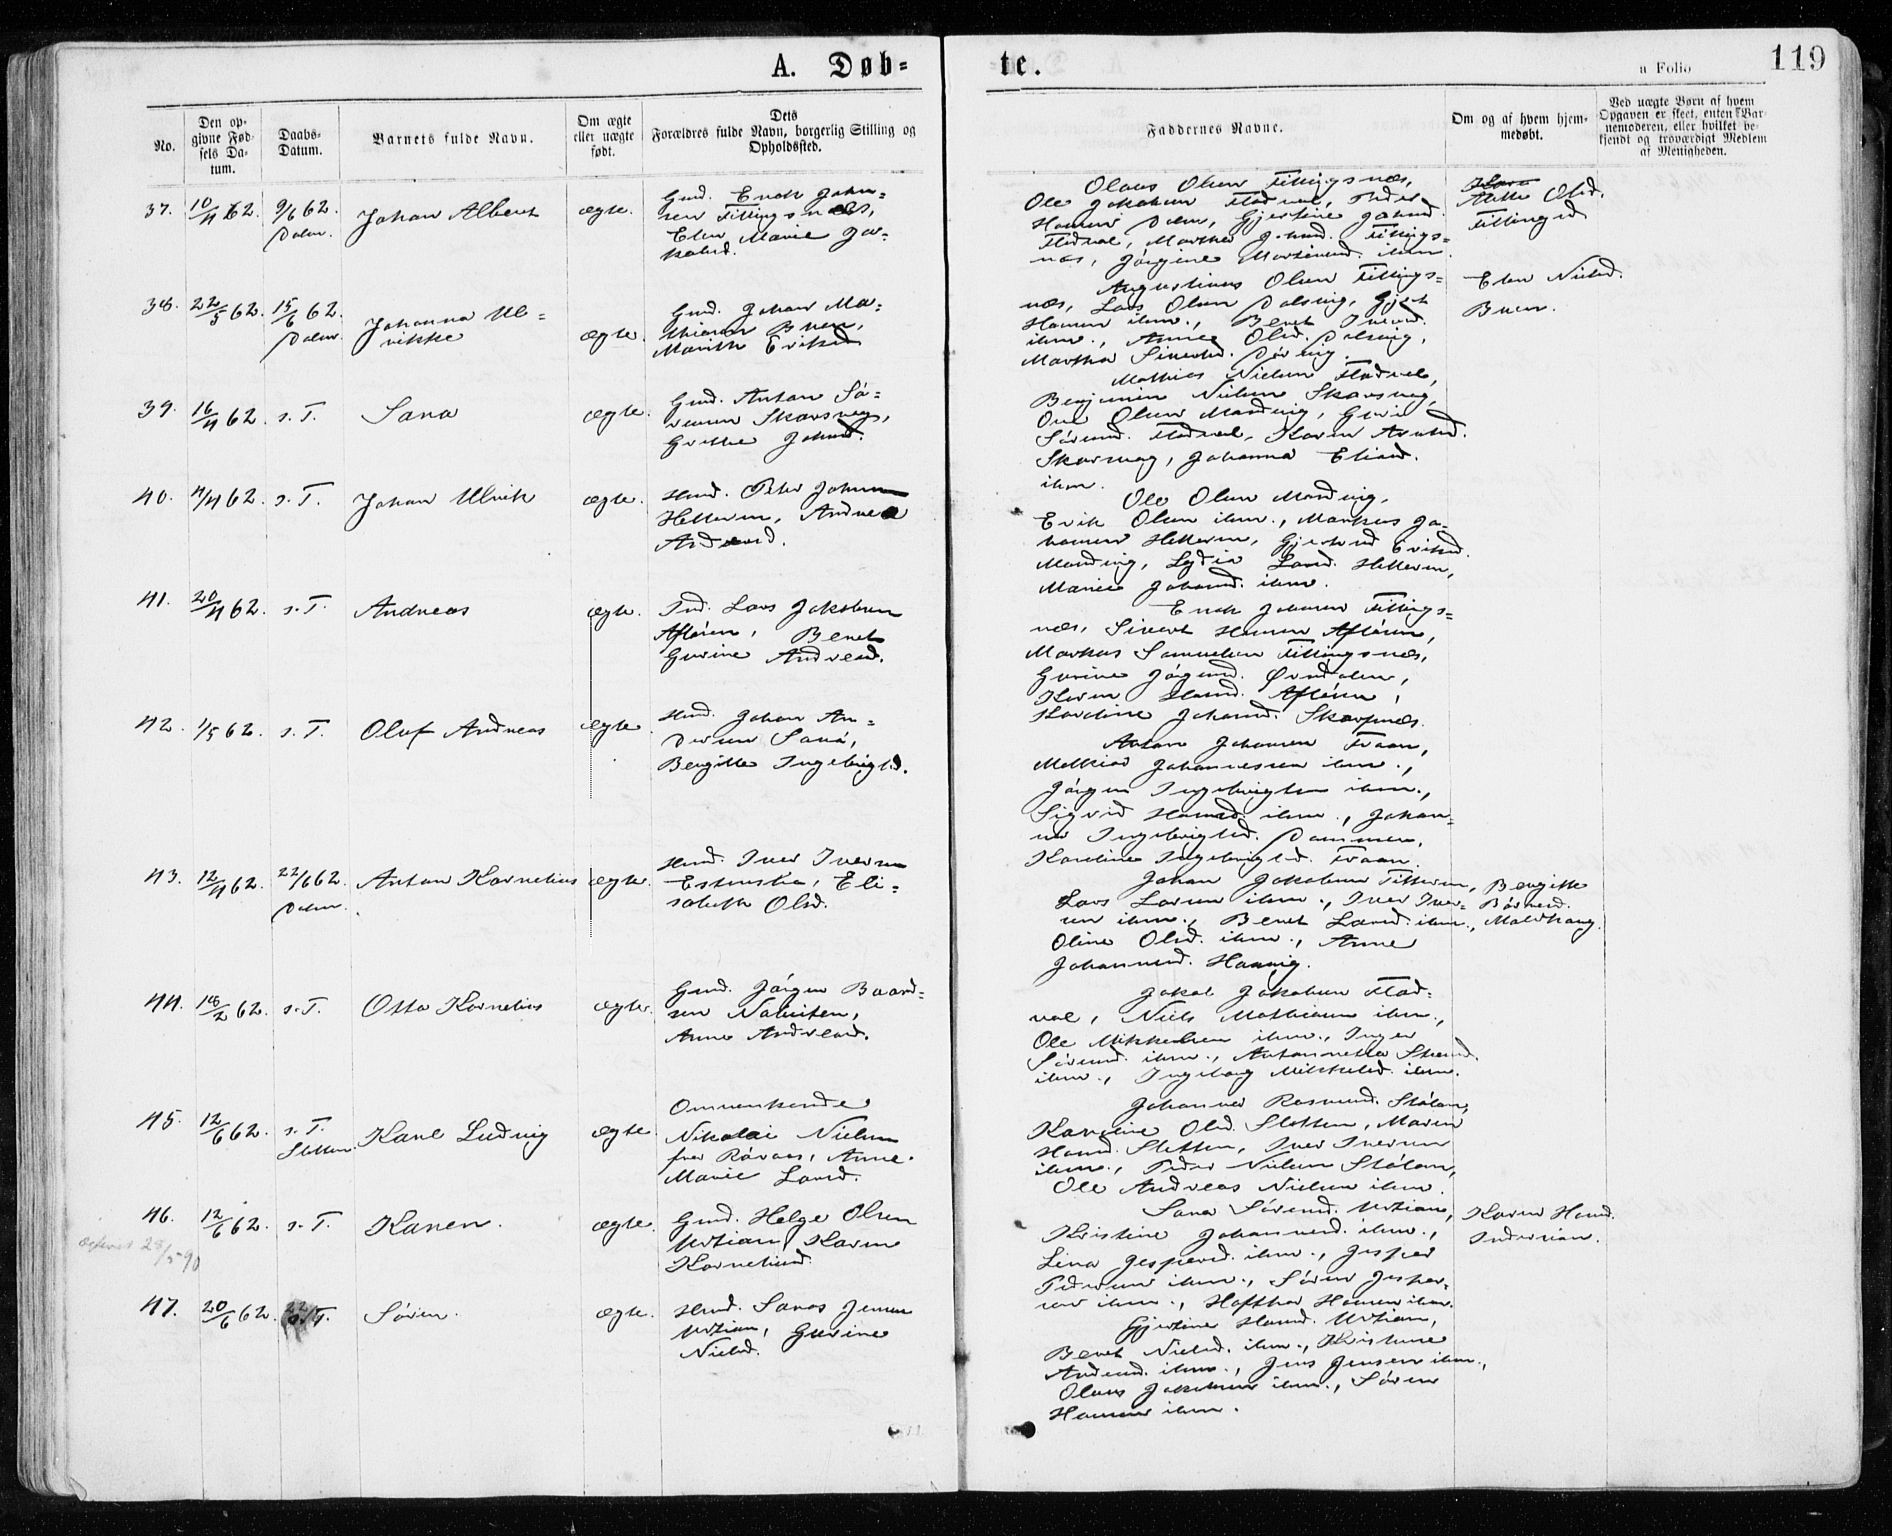 A. Døb-
te.
a Folio
119
No.
Den op-
givne Fød-
sels Da-
tum.
Daabs-
Datum.
Barnets fulde Navn.
Om ægte
eller uægte
født.
Dets
Forældres fulde Navn, borgerlig Stilling og
Opholdssted.
Faddernes Navne.
Om og af hvem hjem-
medøbt.
Ved uægte Børn af hvem
Opgaven er skeet, enten Bar-
nemoderen, eller hvilket be-
kjendt og troværdigt Medlem
af Menigheden.
37. 10/4 62. 9/6 62. Johan Albert ægte. Gmd. Enok Johan-
Dolm. sen Fillingsnæs,
Elen Marie Ja-
kobsd.
Olaus Olsen Fillingsnæs,
Ole Jakobsen Flodval, Peder
Hansen Dolm, Gjertine Johnsd.
Flodval, Martha Johnsd. Fillings-
næs, Jørgine Mortensd. ibm.
Olsd.
38. 22/5 62. 15/6 62. Johanna Ul-
Dolm. rikke ægte. Gmd. Johan Ma-
thiasen Buen,
Marith Eriksd.
Augustinus Olsen Fillings-
næs, Lars Olsen Dolsvig, Gjert
Hansen ibm., Beret Iversd.
ibm., Anne Olsd. Dolsvig,
Martha Sivertsd.
Elen Nielsd.
Buen.
39. 16/4 62. s. T. Sara ægte. Gmd. Anton Sø-
rensen Skarsvag,
Grethe Johnsd.
Mathias Nielsen Flodval,
Benjamin Nielsen Skarsvag,
Ole Olsen
Sørensd. Flodval, Karen Arntsd.
Skarsvag, Johanna Eliasd.
ibm.
40. 4/4 62. s. T. Johan Ulrik ægte. Hmd. Peter Johnsen
Hetteren, Andrea
Ole Olsen
Erik Olsen ibm., Markus Jo-
hansen Hetteren, Gjertrud Eriksd.
Lydia Larsd. Hetteren,
Marie Johansd. ibm.
41. 20/4 62. s. T. Andreas ægte. Ind. Lars Jakobsen
Afløren, Beret
Gurine Andreasd.
Enok Johnsen Fillings-
næs, Sivert Hansen Afløren,
Markus Samuelsen Fillingsnæs,
Gurine Jørgensd.
Karen Hansd. Afløren,
Karoline Johansd. Skarpnæs.
42. 1/5 62. s. T. Oluf Andreas ægte. Hmd. Johan An-
dersen
Bergitte Ingebrigtsd.
Anton Johansen Fraan,
Mathias Johannessen ibm.,
Jørgen Ingebrigtsen ibm.,
Sigrid Hansd. ibm., Johan-
na Ingebrigtsd. Dammen,
Karoline Ingebrigtsd. Fraan.
43. 12/4 62. 22/6 62. Anton Kornelius ægte. Hmd. Iver Iversen
Dolm. Eli-
sabeth Olsd.
Johan Jakobsen
Lars Larsen ibm., Iver Iver-
sen ibm., Beret Larsd. ibm.,
Oline Olsd. ibm., Anne
Johannesd. Haavig.
Bergitte
44. 18/2 62. s. T. Otto Kornelius ægte. Gmd. Jørgen Baard-
sen
Anne Andreasd.
Jakob Jakobsen Flod-
val, Niels Mathiasen ibm.,
Ole Mikkelsen ibm., Inger
Sørensd. ibm., Antonnette
ibm., Ingeborg Mikkelsd. ibm.
45. 12/6 62. s. T. Karl Ludvig ægte Omvankende
Sletten Nikolai Nielsen
fra Røraas, Anne
Marie Larsd.
Johanna Rasmusd. Stølan,
Karoline Olsd. Sletten, Maren
Hansd. Sletten, Iver Iversen
ibm., Peder Nielsen Stølan,
Ole Andreas Nielsen ibm.
46. 12/6 62. s. T. Karen. ægte. Gmd. Helge Olsen
Ulvan, Karen
Korneliusd.
28/5 90
Sara Sørensd. Ulvan,
Kristine Johannesd. ibm.,
Lina Jespersd. ibm., Jesper
Pedersen ibm., Søren Jesper-
sen ibm., Hansen ibm.
Karen Hansd.
47. 20/6 62. 22/6 Søren. ægte. Hmd. Jensen
Ulvan, Gurine
Nielsd.
Gjertine Hansd. Ulvan,
Beret Nielsd. ibm., Kristine
Andersd. ibm., Jens Jensen ibm.,
Olaus Jakobsen ibm., Søren
Hansen ibm.